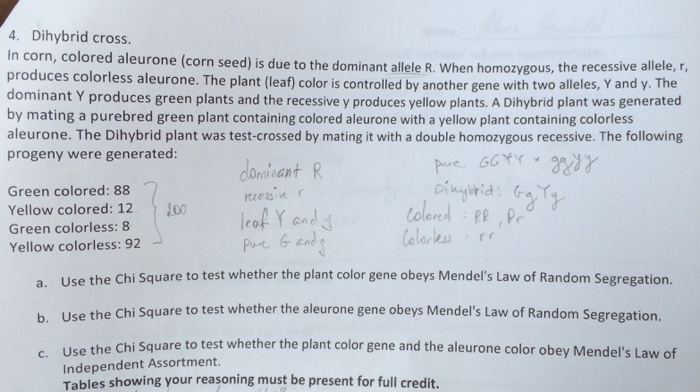 4. Dihybrid cross.
In corn, colored aleurone (corn seed) is due to the dominant allele R. When homozygous, the recessive allele, r,
produces colorless aleurone. The plant (leaf) color is controlled by another gene with two alleles, Y and y. The
dominant Y produces green plants and the recessive y produces yellow plants. A Dihybrid plant was generated
by mating a purebred green plant containing colored aleurone with a yellow plant containing colorless
aleurone. The Dihybrid plant was test-crossed by mating it with a double homozygous recessive. The following
progeny were generated:
dominant R
pure GGYY x ggyy
Green colored: 88
recessive r
Dihybrid: GgYy
Yellow colored: 12
200
leaf Y and y
Colored : RR, Rr
Green colorless: 8
pure G and g
Colorless rr
Yellow colorless: 92
a. Use the Chi Square to test whether the plant color gene obeys Mendel's Law of Random Segregation.
b. Use the Chi Square to test whether the aleurone gene obeys Mendel's Law of Random Segregation.
c. Use the Chi Square to test whether the plant color gene and the aleurone color obey Mendel's Law of
Independent Assortment.
Tables showing your reasoning must be present for full credit.